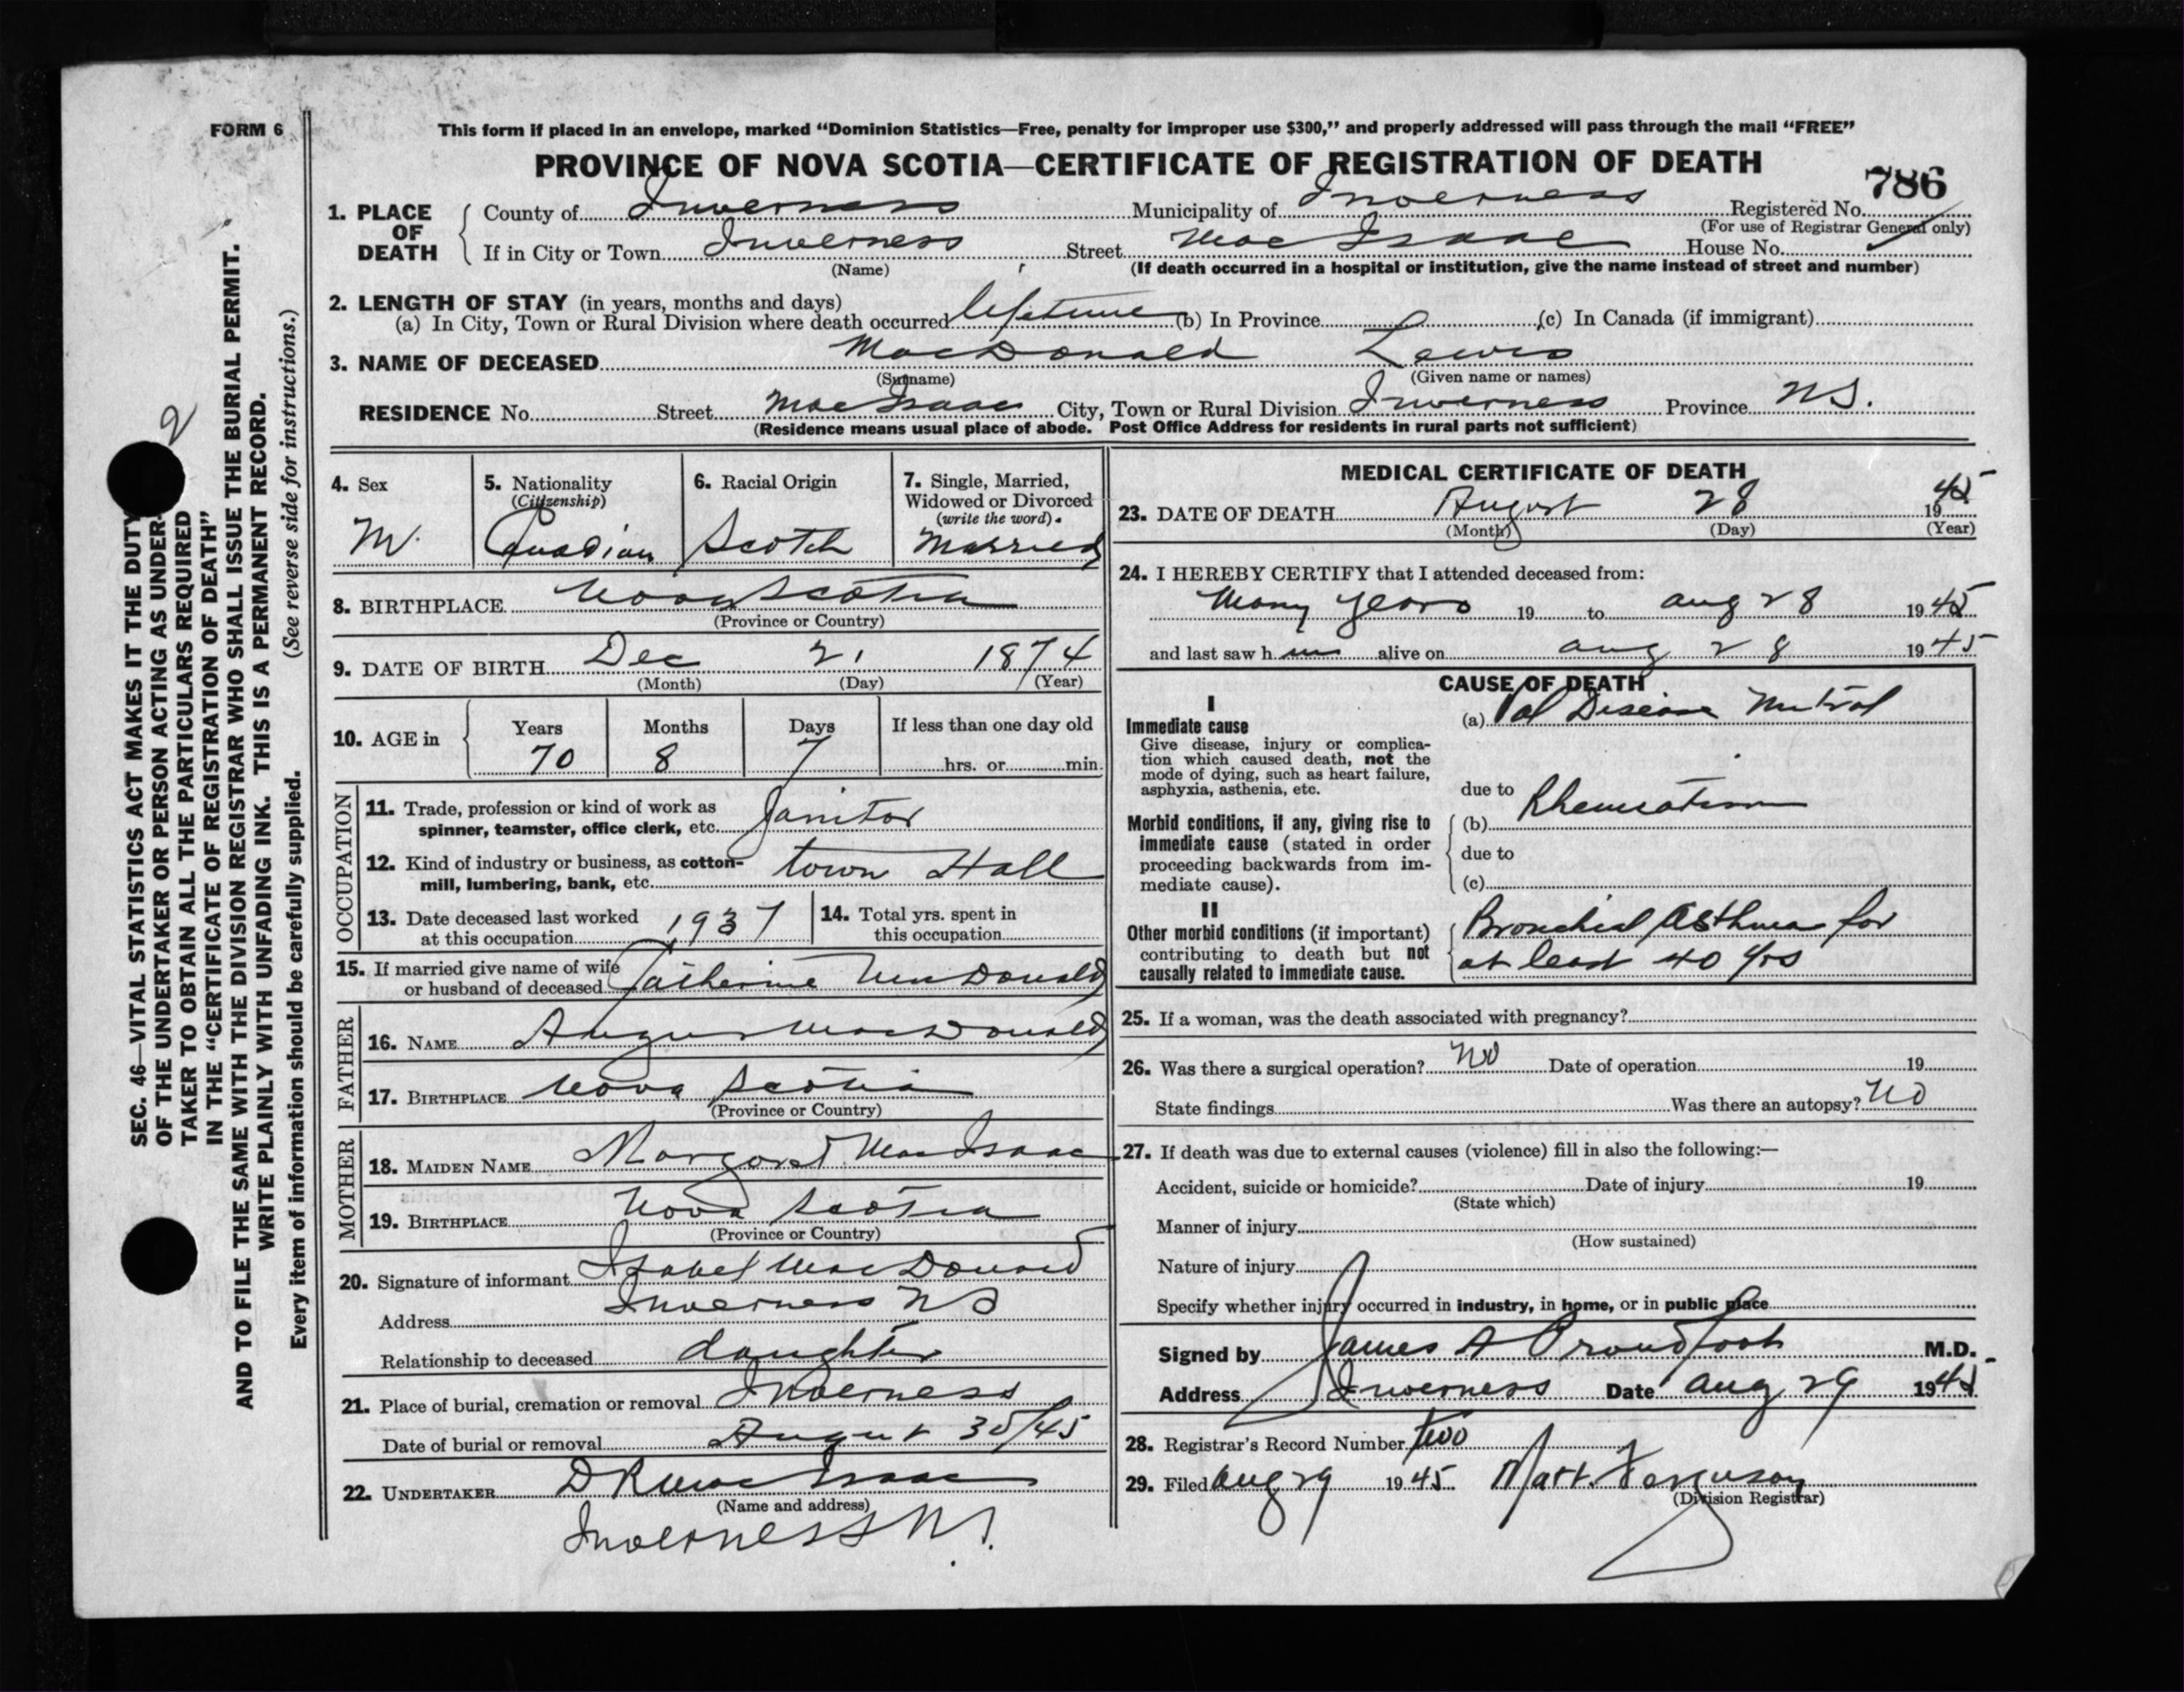 FORM 6
This form if placed in an envelope, marked “Dominion Statistics—Free, penalty for improper use $300,” and properly addressed will pass through the mail “FREE”
PROVINCE OF NOVA SCOTIA—CERTIFICATE OF REGISTRATION OF DEATH
786
1. PLACE OF DEATH
County of Inverness Municipality of Inverness Registered No.
(For use of Registrar General only)
If in City or Town Inverness Street MacIsaac House No.
(Name) (If death occurred in a hospital or institution, give the name instead of street and number)
2. LENGTH OF STAY (in years, months and days)
(a) In City, Town or Rural Division where death occurred lifetime (b) In Province (c) In Canada (if immigrant)
3. NAME OF DECEASED MacDonald Lewis
(Surname) (Given name or names)
RESIDENCE No. Street MacIsaac City, Town or Rural Division Inverness Province N.S.
(Residence means usual place of abode. Post Office Address for residents in rural parts not sufficient)
4. Sex
M.
5. Nationality
(Citizenship)
Canadian
6. Racial Origin
Scotch
7. Single, Married,
Widowed or Divorced
(write the word)
Married
8. BIRTHPLACE Nova Scotia
(Province or Country)
9. DATE OF BIRTH Dec 21 1874
(Month) (Day) (Year)
10. AGE in
Years Months Days If less than one day old
70 8 7 hrs. or min.
OCCUPATION
11. Trade, profession or kind of work as
spinner, teamster, office clerk, etc. Janitor
12. Kind of industry or business, as cotton-
mill, lumbering, bank, etc. town Hall
13. Date deceased last worked
at this occupation 1937
14. Total yrs. spent in
this occupation
15. If married give name of wife
or husband of deceased Catherine MacDonald
FATHER
16. NAME Angus MacDonald
17. BIRTHPLACE Nova Scotia
(Province or Country)
MOTHER
18. MAIDEN NAME Margaret MacIsaac
19. BIRTHPLACE Nova Scotia
(Province or Country)
20. Signature of informant Isabel MacDonald
Address Inverness NS
Relationship to deceased daughter
21. Place of burial, cremation or removal Inverness
Date of burial or removal August 30/45
22. UNDERTAKER D R MacIsaac
(Name and address)
Inverness N.S.
MEDICAL CERTIFICATE OF DEATH
23. DATE OF DEATH August 28 1945
(Month) (Day) (Year)
24. I HEREBY CERTIFY that I attended deceased from:
Many years 19 to aug 28 1945
and last saw h im alive on aug 28 1945
CAUSE OF DEATH
I
Immediate cause
Give disease, injury or complica-
tion which caused death, not the
mode of dying, such as heart failure,
asphyxia, asthenia, etc.
(a) Val Disease Mitral
due to
Morbid conditions, if any, giving rise to
immediate cause (stated in order
proceeding backwards from im-
mediate cause).
(b) Rheumatism
due to
(c)
II
Other morbid conditions (if important)
contributing to death but not
causally related to immediate cause.
Bronchial Asthma for
at least 40 yrs
25. If a woman, was the death associated with pregnancy?
26. Was there a surgical operation? No Date of operation 19
State findings Was there an autopsy? No
27. If death was due to external causes (violence) fill in also the following:—
Accident, suicide or homicide? Date of injury 19
(State which)
Manner of injury
(How sustained)
Nature of injury
Specify whether injury occurred in industry, in home, or in public place
Signed by James A Proudfoot M.D.
Address Inverness Date aug 29 1945
28. Registrar's Record Number two
29. Filed Aug 29 1945 Matt. Ferguson
(Division Registrar)
SEC. 46—VITAL STATISTICS ACT MAKES IT THE DUTY
OF THE UNDERTAKER OR PERSON ACTING AS UNDER-
TAKER TO OBTAIN ALL THE PARTICULARS REQUIRED
IN THE “CERTIFICATE OF REGISTRATION OF DEATH”
AND TO FILE THE SAME WITH THE DIVISION REGISTRAR WHO SHALL ISSUE THE BURIAL PERMIT.
WRITE PLAINLY WITH UNFADING INK. THIS IS A PERMANENT RECORD.
Every item of information should be carefully supplied. (See reverse side for instructions.)
2